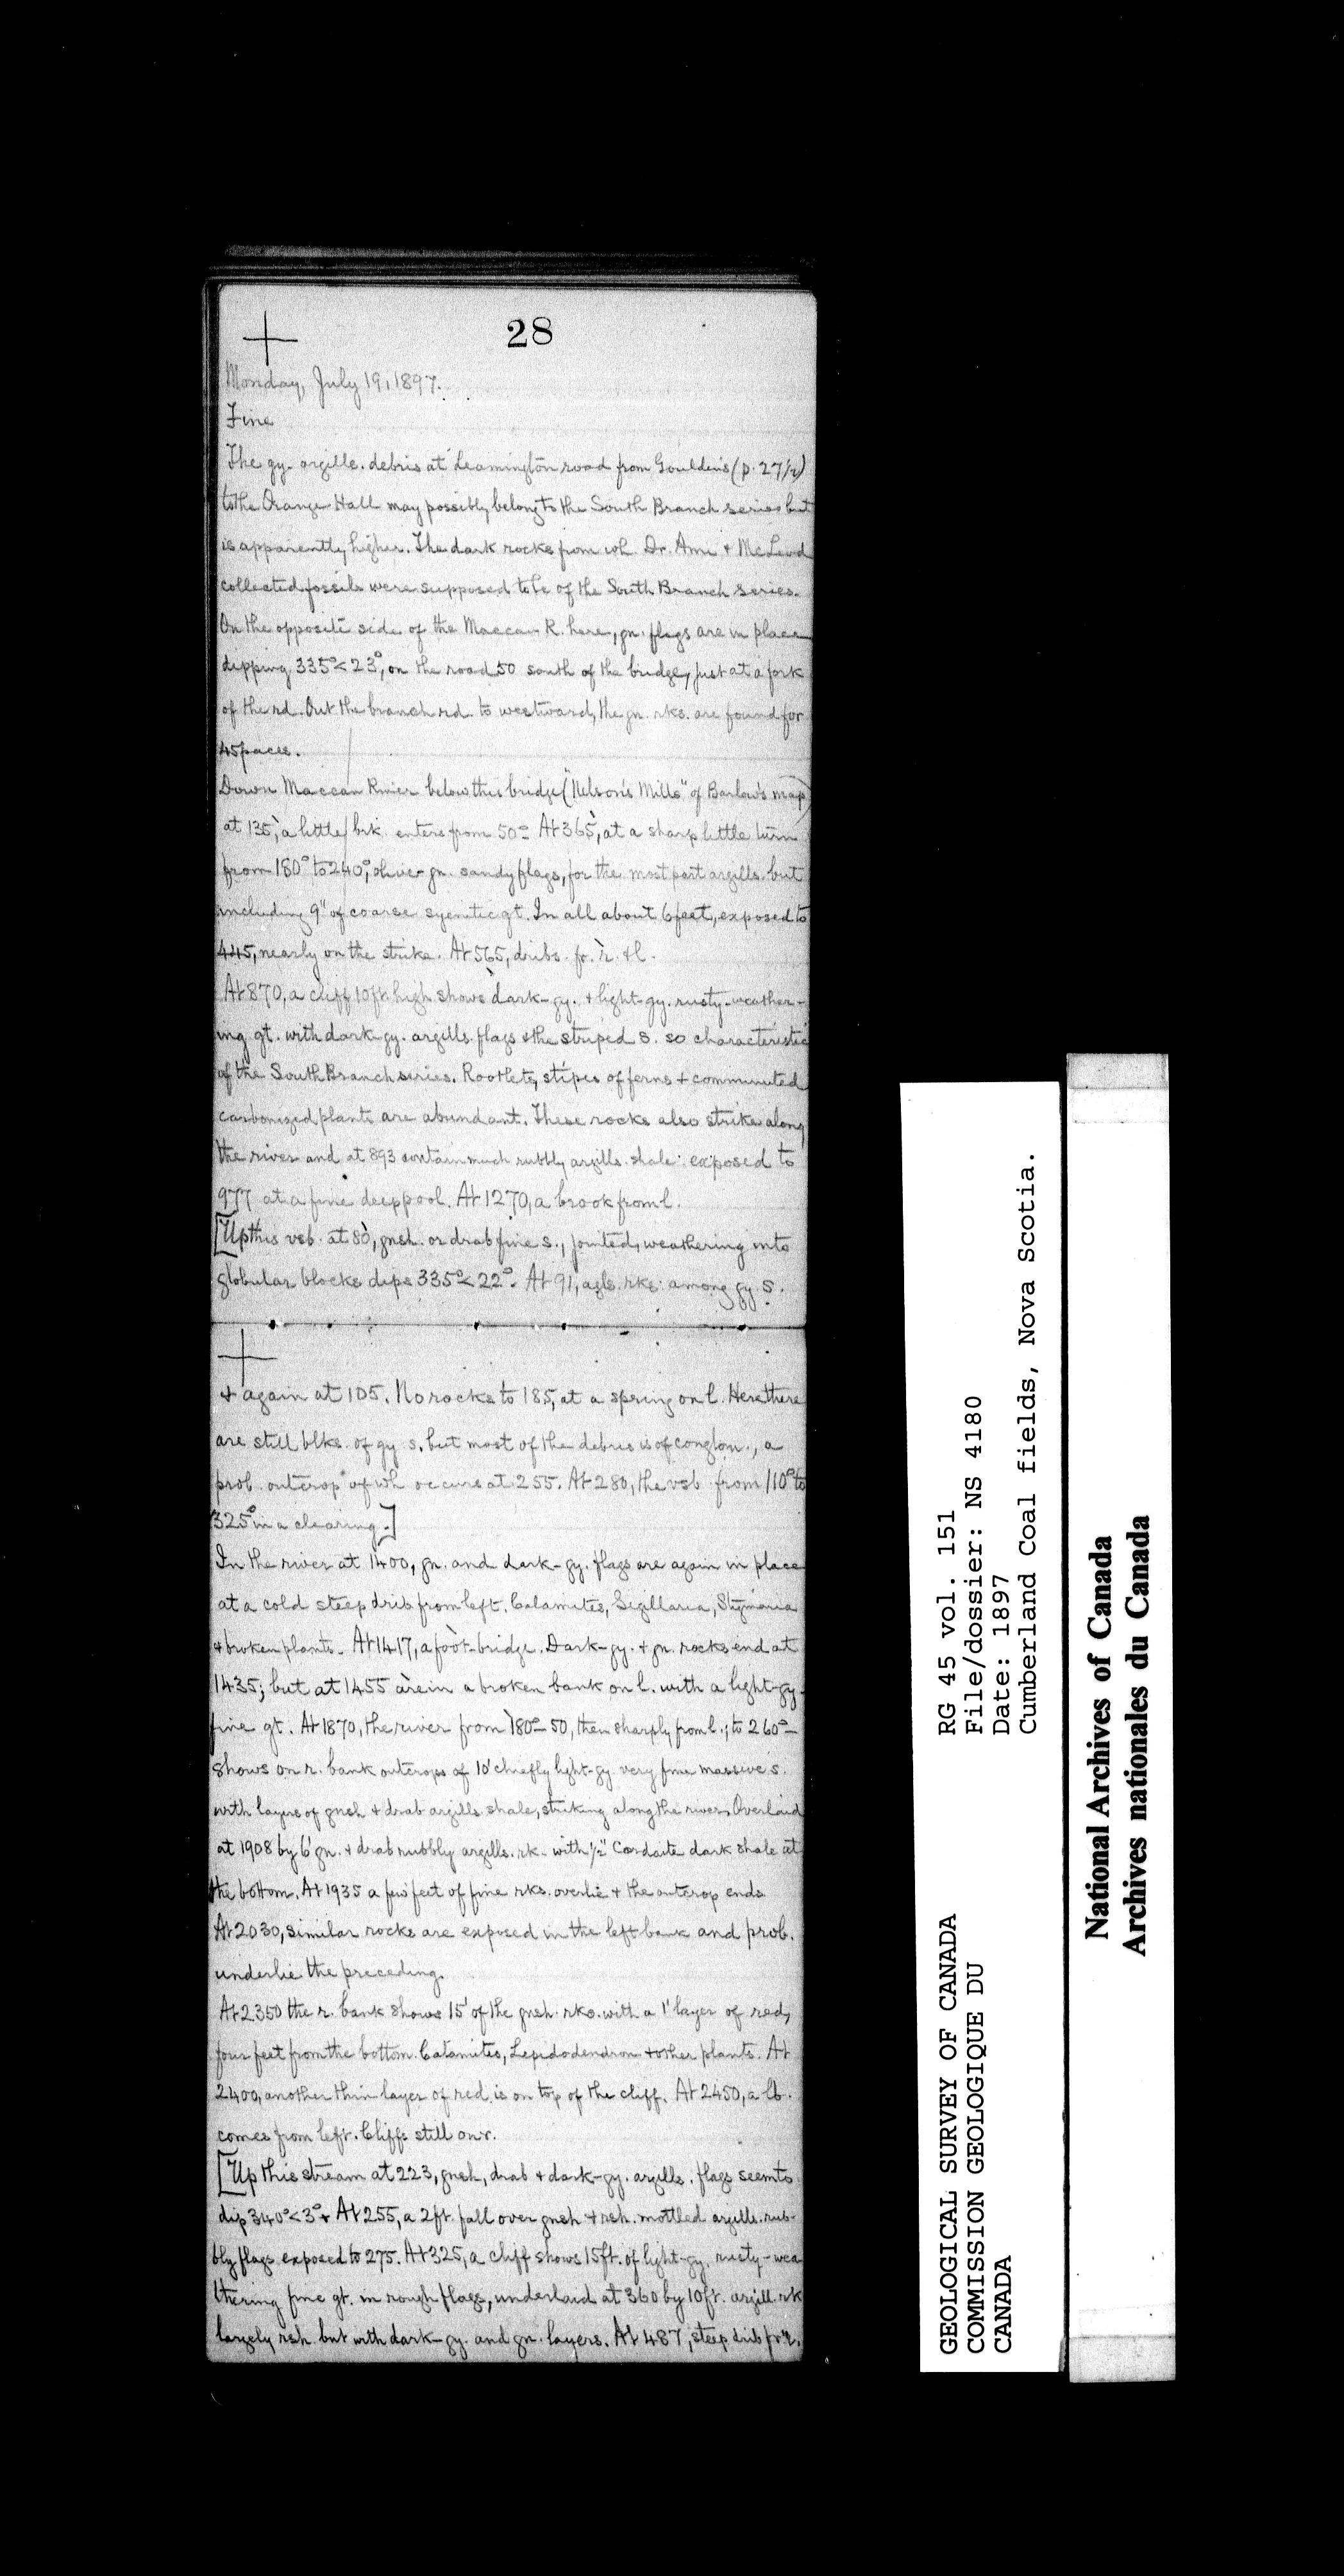 28
Monday, July 19, 1897.
Fine
The gy. argills. debris at Leamington road from Gouldin's (p. 27½)
to the Orange Hall may possibly belong to the South Branch series but
is apparently higher. The dark rocks from wh. Dr. Ami & McLeod
collected fossils were supposed to be of the South Branch series.
On the opposite side of the Maccan R. here, gn. flags are in place
dipping 335°<23°, on the road 50 south of the bridge, just at a fork
of the rd. Out the branch rd. to westward, the gn. rks. are found for
45 paces.
Down Maccan River below this bridge ("Nelson's Mills" of Barlow's map)
at 135, a little brk. enters from 50°. At 365, at a sharp little turn
from 180° to 240°, olive-gn. sandy flags, for the most part argills. but
including 9" of coarse syenitic gt. In all about 6 feet, exposed to
445, nearly on the strike. At 565, dribs. fr. r. & l.
At 870, a cliff 10ft. high shows dark-gy. & light-gy. rusty-weather-
ing gt. with dark-gy. argills. flags & the striped s. so characteristic
of the South Branch series. Rootlets, stipes of ferns & comminuted
carbonized plants are abundant. These rocks also strike along
the river and at 893 contain much rubbly argills. shale: exposed to
977 at a fine deep pool. At 1270, a brook from l.
[Up this vsb. at 80, gnsh. or drab fine s., jointed, weathering into
globular blocks dips 335°<22°. At 91, agls. rks. among gy. s.
& again at 105. No rocks to 185, at a spring on l. Here there
are still blks. of gy s. but most of the debris is of conglom., a
prob. outcrop of wh occurs at 255. At 280, the vsb from 110° to
325° in a clearing.]
In the river at 1400, gn. and dark-gy. flags are again in place
at a cold steep drib from left. Calamites, Sigillaria, Stigmaria
& broken plants. At 1417, a foot-bridge. Dark-gy. & gn. rocks end at
1435; but at 1455 are in a broken bank on l. with a light-gy.
fine gt. At 1870, the river from 180°-50, then sharply from l.; to 260°-
shows on r. bank outcrops of 10' chiefly light-gy. very fine massive s.
with layers of gnsh & drab argills. shale, striking along the river. Overlaid
at 1908 by 6' gn. & drab rubbly argills. rk. with ½" Cordaite dark shale at
the bottom. At 1935 a few feet of fine rks. overlie & the outcrop ends.
At 2030, similar rocks are exposed in the left bank and prob.
underlie the preceding.
At 2350 the r. bank shows 15' of the gnsh. rks. with a 1' layer of red,
four feet from the bottom. Calamites, Lepidodendron & other plants. At
2400, another thin layer of red is on top of the cliff. At 2450, a lb.
comes from left. Cliffs still on r.
[Up this stream at 223, gnsh, drab & dark-gy. argills. flags seem to
dip 340°<3°. At 255, a 2ft. fall over gnsh & rsh. mottled argills. rub-
bly flags exposed to 275. At 325, a cliff shows 15ft. of light-gy. rusty-wea
thering fine gt. in rough flags, underlaid at 360 by 10ft. argill. rk
largely rsh but with dark-gy. and gn. layers. At 487, steep drib fr. r.
GEOLOGICAL SURVEY OF CANADA
COMMISSION GEOLOGIQUE DU
CANADA
RG 45 vol. 151
File/dossier: NS 4180
Date: 1897
Cumberland Coal fields, Nova Scotia.
National Archives of Canada
Archives nationales du Canada